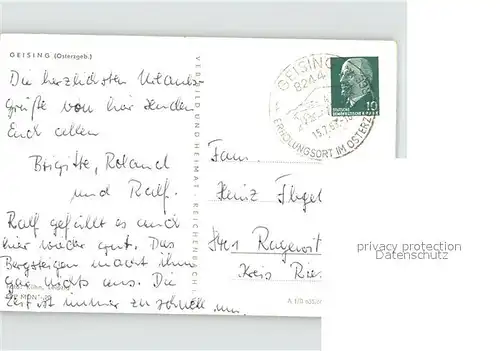 GEISING (Osterzgeb.)
Die herzlichsten Urlaubs-
grüße von hier senden
Euch allen
Brigitte, Roland
und Ralf.
Ralf gefällt es auch
hier wieder gut. Das
Bergsteigen macht ihm
gar nichts aus. Die
Zeit ist immer zu schnell um.
VERLAG BILD UND HEIMAT REICHENBACH
GEISING
8244
ERHOLUNGSORT IM OSTERZ
10
DEUTSCHE
Fam.
Heinz
Ragewit
Kreis Rie
privacy protection
Datenschutz